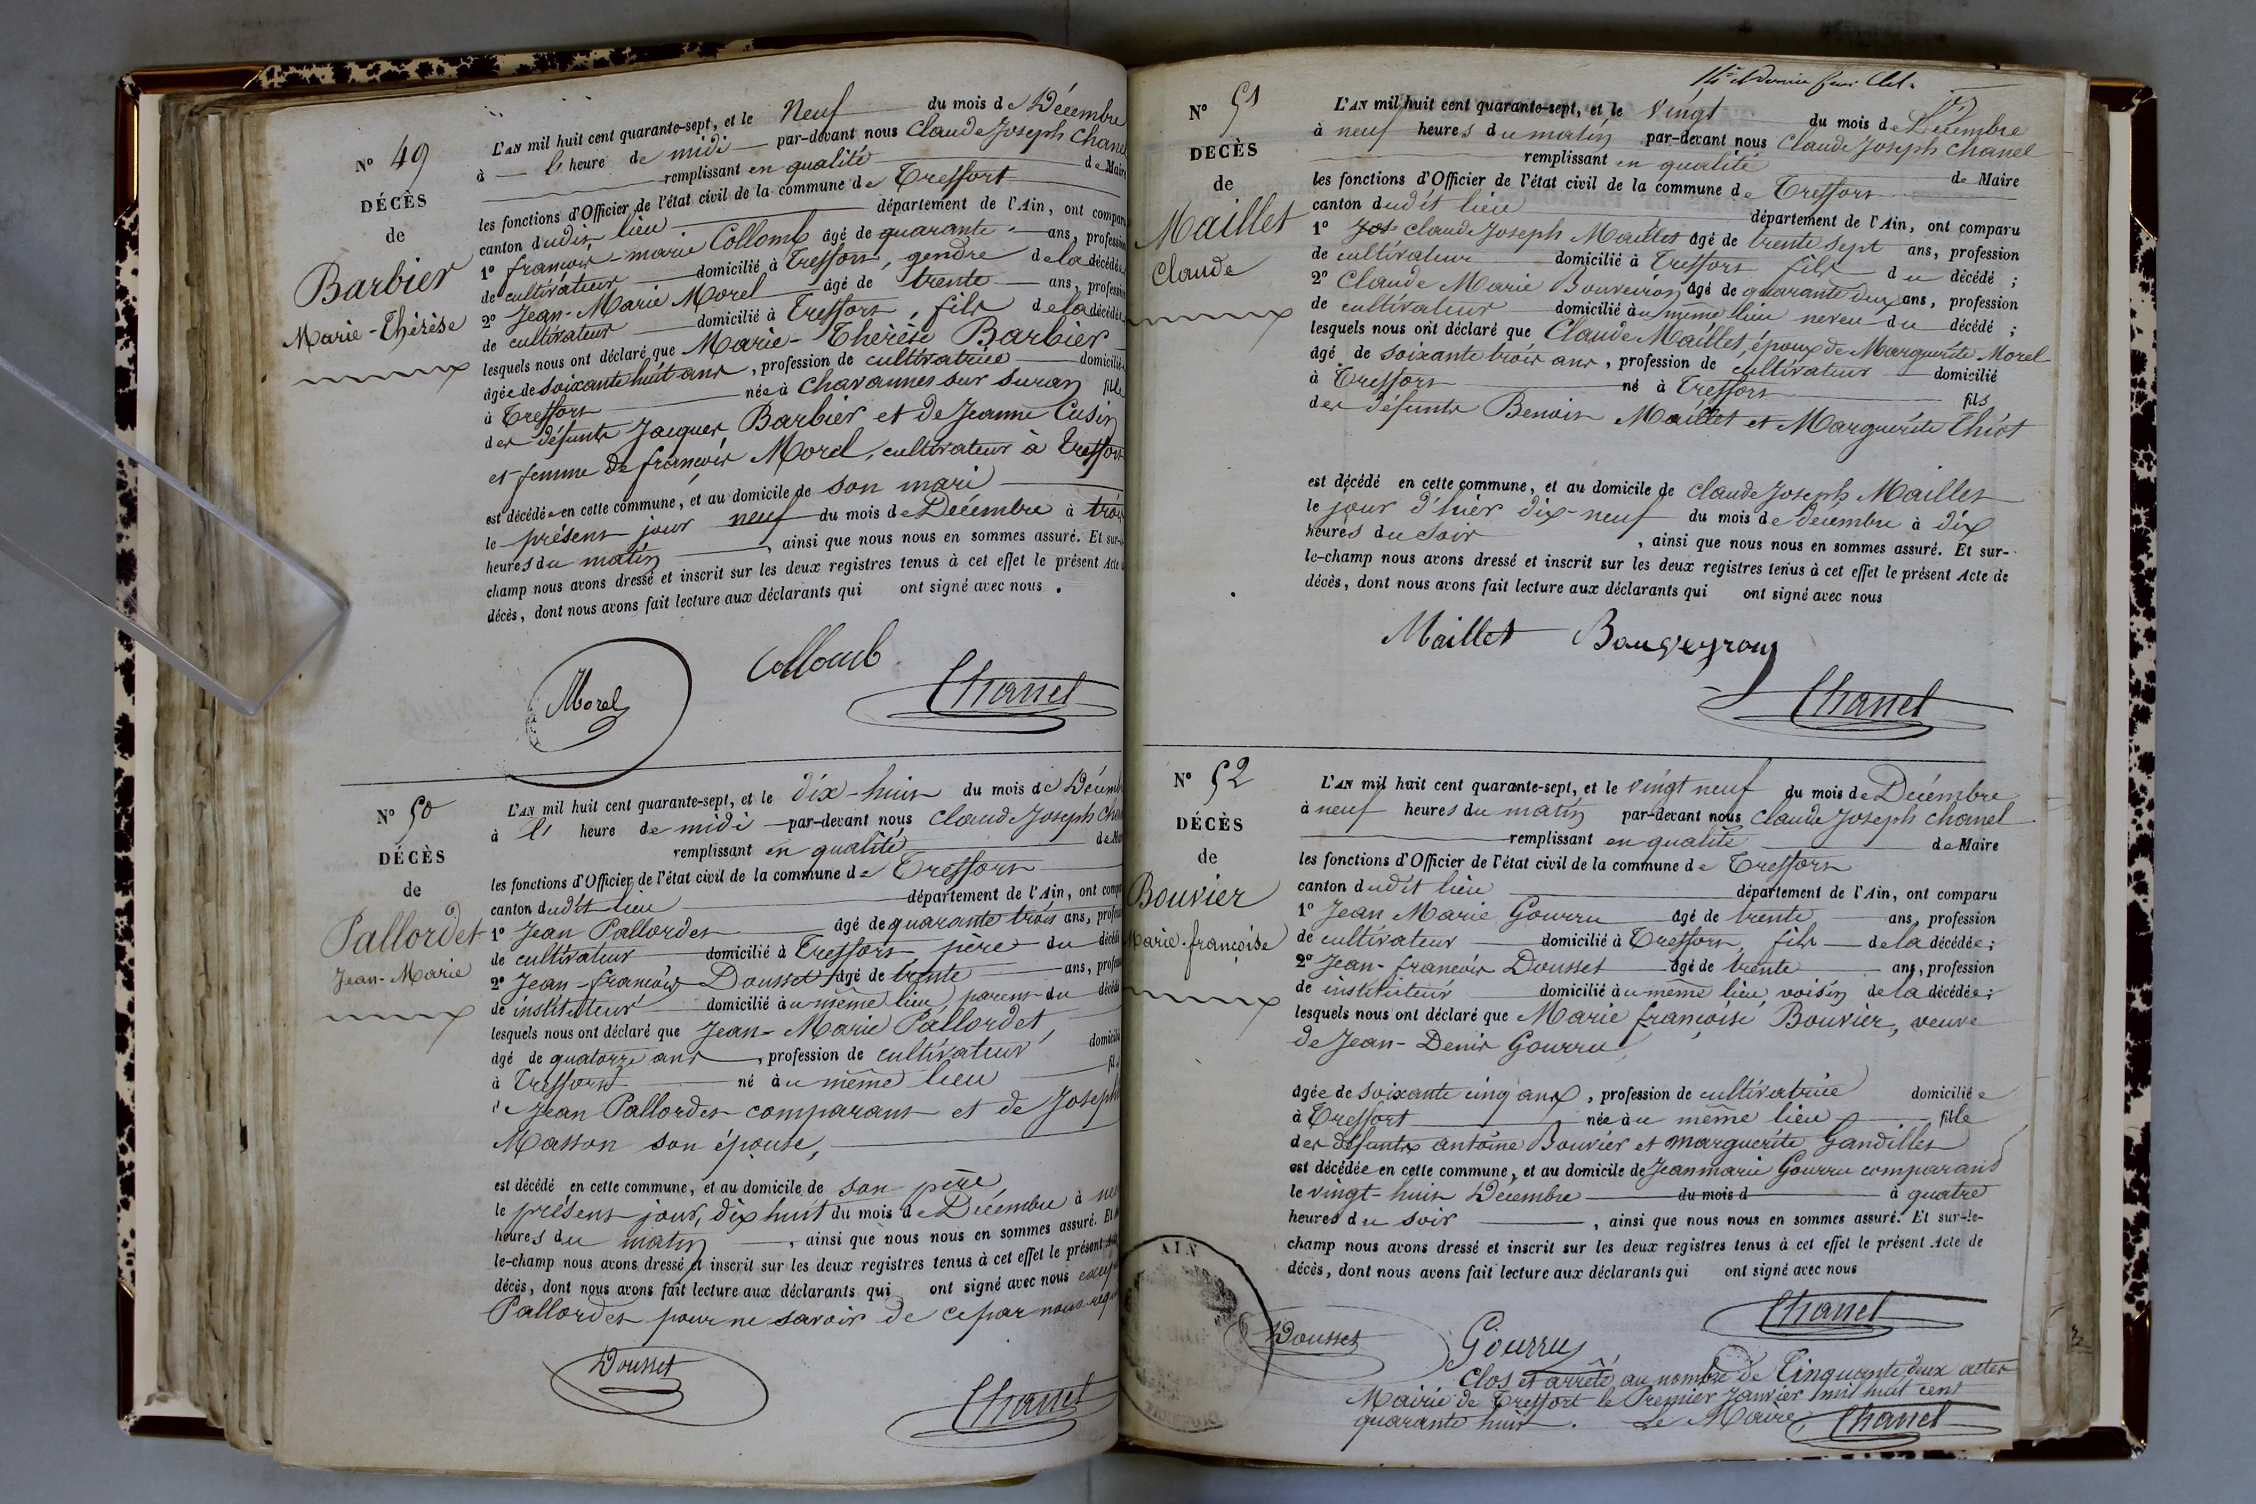 N° 49
DÉCÈS
de
Barbier
Marie-Thérèse
L'AN mil huit cent quarante-sept, et le Neuf du mois de Décembre
à l' heure de midi par-devant nous Claude Joseph Chanel
remplissant en qualité de Maire
les fonctions d'Officier de l'état civil de la commune de Treffort
canton dudit lieu département de l'Ain, ont comparu
1° françois-marie Collomb âgé de quarante ans, profession
de cultivateur domicilié à Treffort, gendre de la décédée
2° Jean-Marie Morel âgé de trente ans, profession
de cultivateur domicilié à Treffort, fils de la décédée
lesquels nous ont déclaré que Marie-Thérèse Barbier
âgée de soixante huit ans, profession de cultivatrice domiciliée
à Treffort née à Chavannes sur Suran fille
des défunts Jacques Barbier et de Jeanne Cusin
et femme de françois Morel, cultivateur à Treffort
est décédée en cette commune, et au domicile de son mari
le présent jour neuf du mois de Décembre à trois
heures du matin, ainsi que nous nous en sommes assuré. Et sur-le-
champ nous avons dressé et inscrit sur les deux registres tenus à cet effet le présent Acte de
décès, dont nous avons fait lecture aux déclarants qui ont signé avec nous.
Collomb
Morel
Chanel
N° 50
DÉCÈS
de
Pallordet
Jean-Marie
L'AN mil huit cent quarante-sept, et le dix-huit du mois de Décemb
à l' heure de midi par-devant nous Claude Joseph Chan
remplissant en qualité de Mai
les fonctions d'Officier de l'état civil de la commune de Treffort
canton dudit lieu département de l'Ain, ont compa
1° Jean Pallordet âgé de quarante trois ans, profess
de cultivateur domicilié à Treffort, père du décédé
2° Jean-françois Dousset âgé de trente ans, profess
de instituteur domicilié au même lieu, parent du décédé
lesquels nous ont déclaré que Jean-Marie Pallordet,
âgé de quatorze ans, profession de cultivateur, domicilié
à Treffort né au même lieu fils
d' Jean Pallordet comparant et de Joseph
Masson son épouse,
est décédé en cette commune, et au domicile de son père
le présent jour, dix huit du mois de Décembre à neu
heures du matin, ainsi que nous nous en sommes assuré. Et sur-
le-champ nous avons dressé et inscrit sur les deux registres tenus à cet effet le présent Acte
décès, dont nous avons fait lecture aux déclarants qui ont signé avec nous excep
Pallordet pour ne savoir de ce par nous requ
Dousset
Chanel
N° 51
DÉCÈS
de
Maillet
Claude
L'AN mil huit cent quarante-sept, et le Vingt du mois de Décembre
à neuf heures du matin par-devant nous Claude Joseph Chanel
remplissant en qualité de Maire
les fonctions d'Officier de l'état civil de la commune de Treffort
canton dudit lieu département de l'Ain, ont comparu
1° Claude Joseph Maillet âgé de trente sept ans, profession
de cultivateur domicilié à Treffort fils du décédé ;
2° Claude Marie Bouveiron âgé de quarante deux ans, profession
de cultivateur domicilié au même lieu neveu du décédé ;
lesquels nous ont déclaré que Claude Maillet, époux de Marguerite Morel
âgé de soixante trois ans, profession de cultivateur domicilié
à Treffort né à Treffort fils
des défunts Benoit Maillet et Marguerite Thiot
est décédé en cette commune, et au domicile de Claude Joseph Maillet
le jour d'hier dix-neuf du mois de décembre à dix
heures du soir, ainsi que nous nous en sommes assuré. Et sur-
le-champ nous avons dressé et inscrit sur les deux registres tenus à cet effet le présent Acte de
décès, dont nous avons fait lecture aux déclarants qui ont signé avec nous
Maillet Bouveyron
Chanel
N° 52
DÉCÈS
de
Bouvier
Marie-françoise
L'AN mil huit cent quarante-sept, et le Vingt neuf du mois de Décembre
à neuf heures du matin par-devant nous Claude Joseph Chanel
remplissant en qualité de Maire
les fonctions d'Officier de l'état civil de la commune de Treffort
canton dudit lieu département de l'Ain, ont comparu
1° Jean Marie Gourru âgé de trente ans, profession
de cultivateur domicilié à Treffort, fils de la décédée ;
2° Jean-françois Dousset âgé de trente ans, profession
de instituteur domicilié au même lieu, voisin de la décédée ;
lesquels nous ont déclaré que Marie françoise Bouvier, veuve
de Jean-Denis Gourru,
âgée de soixante cinq ans, profession de cultivatrice domiciliée
à Treffort née au même lieu fille
des défunts antoine Bouvier et marguerite Gandillet
est décédée en cette commune, et au domicile de Jean marie Gourru comparant
le vingt-huit Décembre du mois d à quatre
heures du soir, ainsi que nous nous en sommes assuré. Et sur-le-
champ nous avons dressé et inscrit sur les deux registres tenus à cet effet le présent Acte de
décès, dont nous avons fait lecture aux déclarants qui ont signé avec nous
Chanel
Dousset Gourru
Clos et arrêté au nombre de Cinquante deux actes
Mairie de Treffort le Premier Janvier mil huit cent
quarante huit. Le Maire, Chanel
AIN